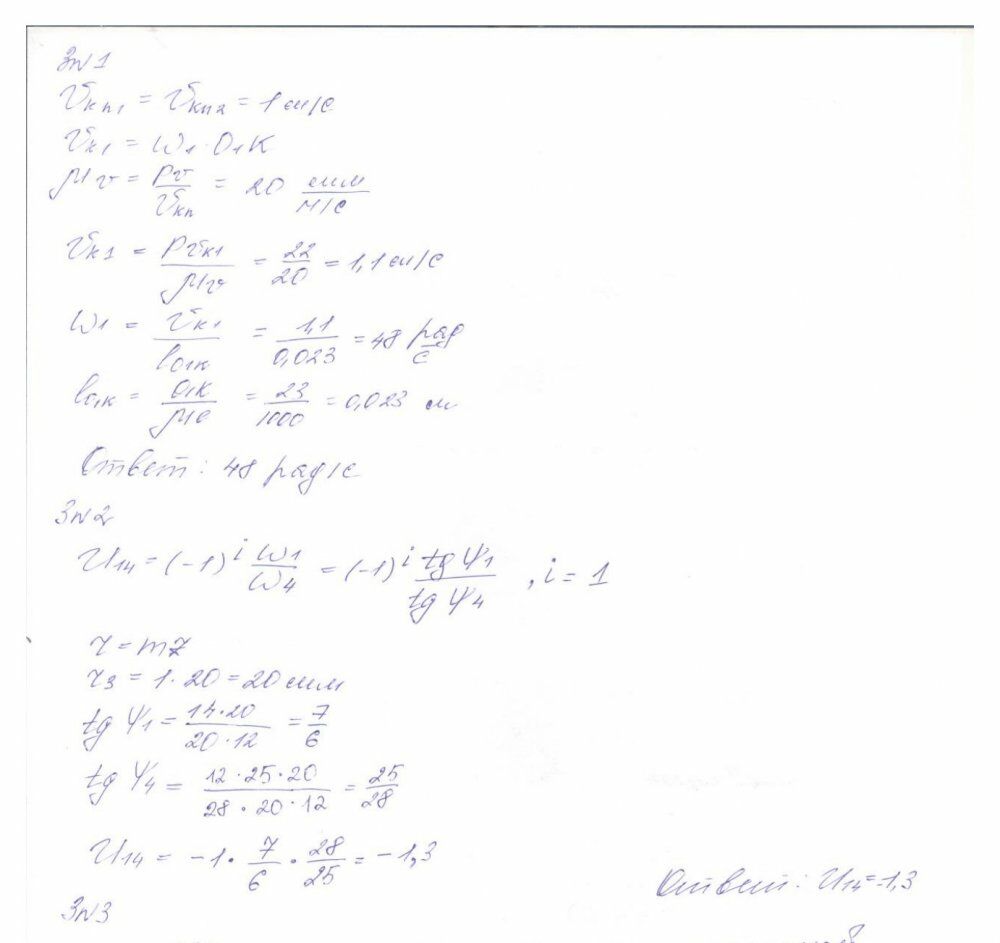 З№1
Vкп1 = Vкп2 = 1 м/с
Vк1 = ω1 · O1K
μv = Pv/Vкп = 20 мм/м/с
Vк1 = Pvк1/μv = 22/20 = 1,1 м/с
ω1 = Vк1/lo1к = 1,1/0,023 = 48 рад/с
lo1к = O1K/μe = 23/1000 = 0,023 м
Ответ: 48 рад/с
З№2
U14 = (-1)^i ω1/ω4 = (-1)^i tg ψ1/tg ψ4 , i = 1
r = mz
r3 = 1·20 = 20 мм
tg ψ1 = 14·20/20·12 = 7/6
tg ψ4 = 12·25·20/28·20·12 = 25/28
U14 = -1 · 7/6 · 28/25 = -1,3
Ответ: U14 = -1,3
З№3